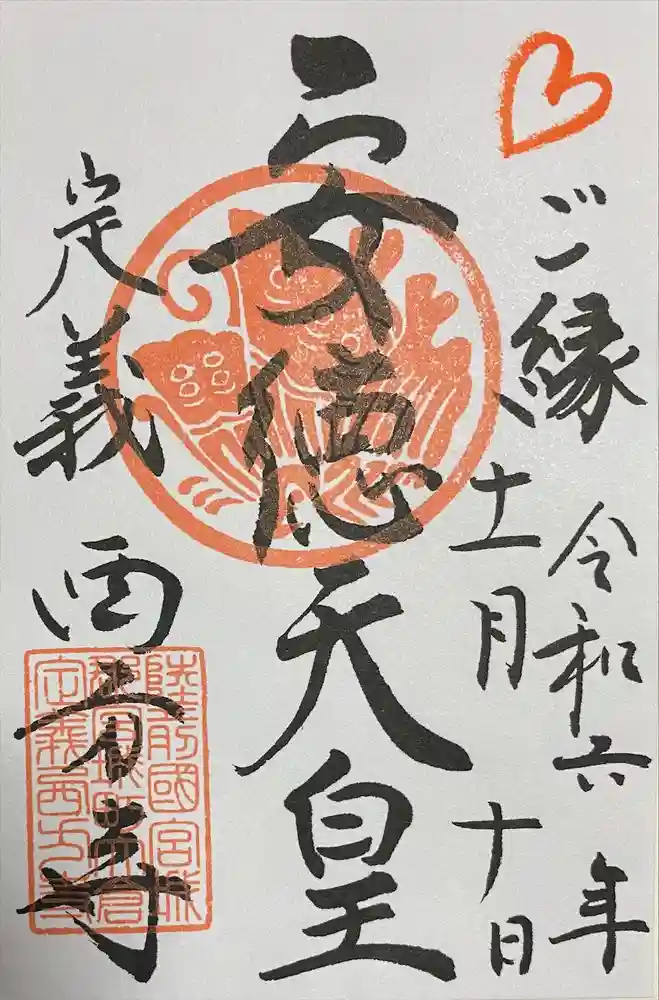 ご縁
令和六年
十一月十日
安徳天皇
定義 西方寺
陸前國宮城
郡宮城町大倉
定義西方寺